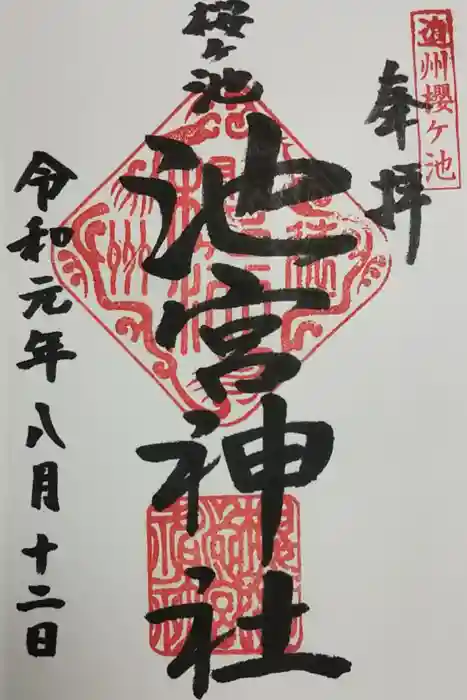 遠州櫻ヶ池
奉拝
櫻ヶ池
池宮神社
令和元年八月十二日